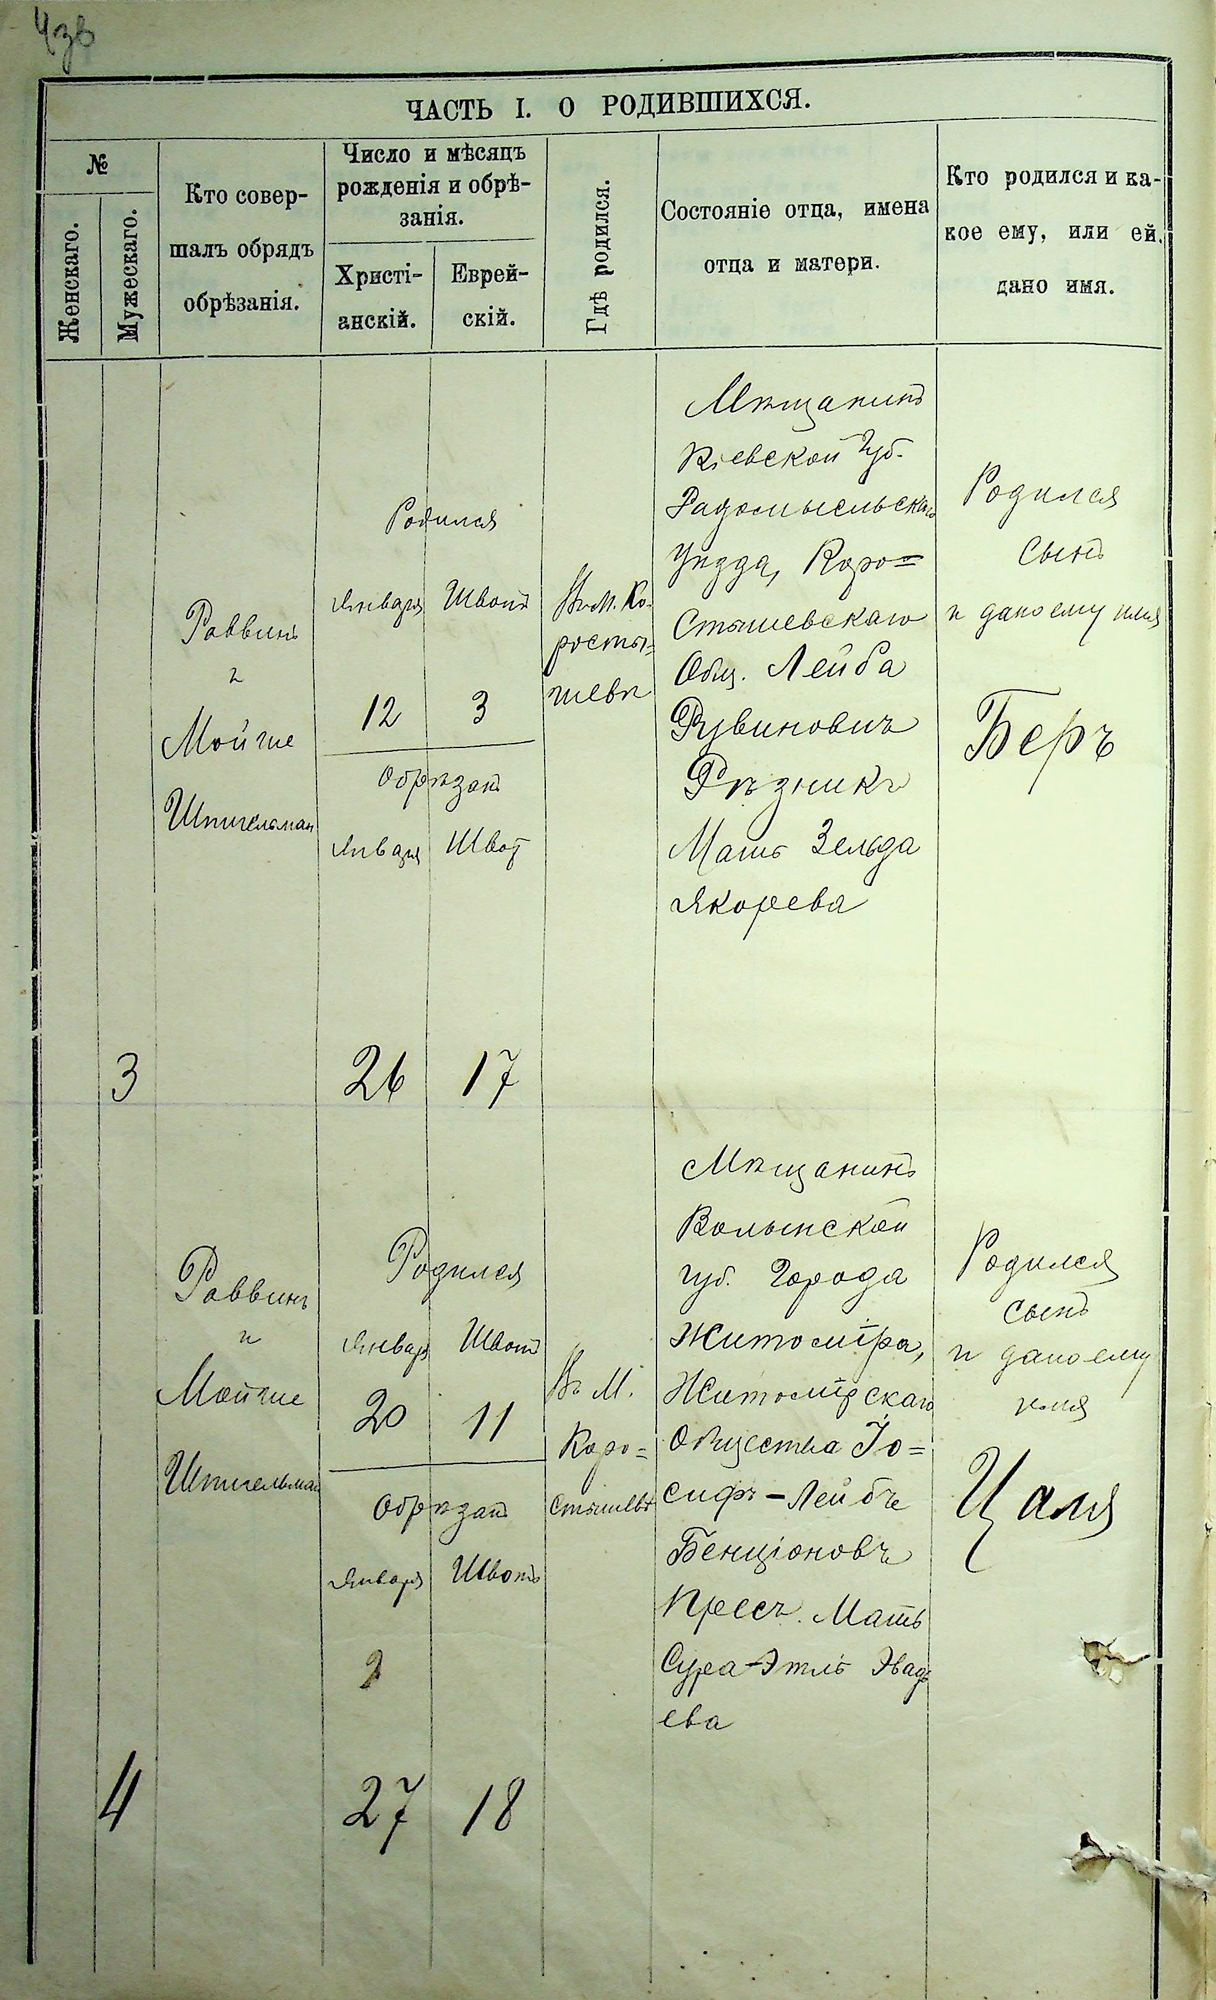 ЧАСТЬ I. О РОДИВШИХСЯ.
№
Женскаго.
Мужескаго.
Кто совер-
шалъ обрядъ
обрѣзанія.
Число и мѣсяцъ
рожденія и обрѣ-
занія.
Христі-
анскій.
Еврей-
скій.
Гдѣ родился.
Состояніе отца, имена
отца и матери.
Кто родился и ка-
кое ему, или ей,
дано имя.
3
Раввинъ
и
Мойше
Шпигельман
Родился
Января Швотъ
12 3
Обрѣзанъ
Января Швот
26 17
Въ М. Ко-
росты-
шевѣ
Мѣщанинъ
Кіевской Губ.
Радомысльскаго
Уѣзда, Коро=
стышевскаго
Общ. Лейба
Рувиновичъ
Рѣзникъ
Мать Зельда
Якорева
Родился
сынъ
и дано ему имя
Беръ
4
Раввинъ
и
Мойше
Шпигельман
Родился
Январ Швотъ
20 11
Обрѣзанъ
Января Швотъ
27 18
Въ М.
Коро=
стышевѣ
Мѣщанинъ
Волынской
губ. Города
Житоміра,
Житомірскаго
Общества Іо=
сифъ-Лейбъ
Бенціоновъ
Пресъ. Мать
Сура-Этль
ева
Родился
сынъ
и дано ему
имя
Цаля